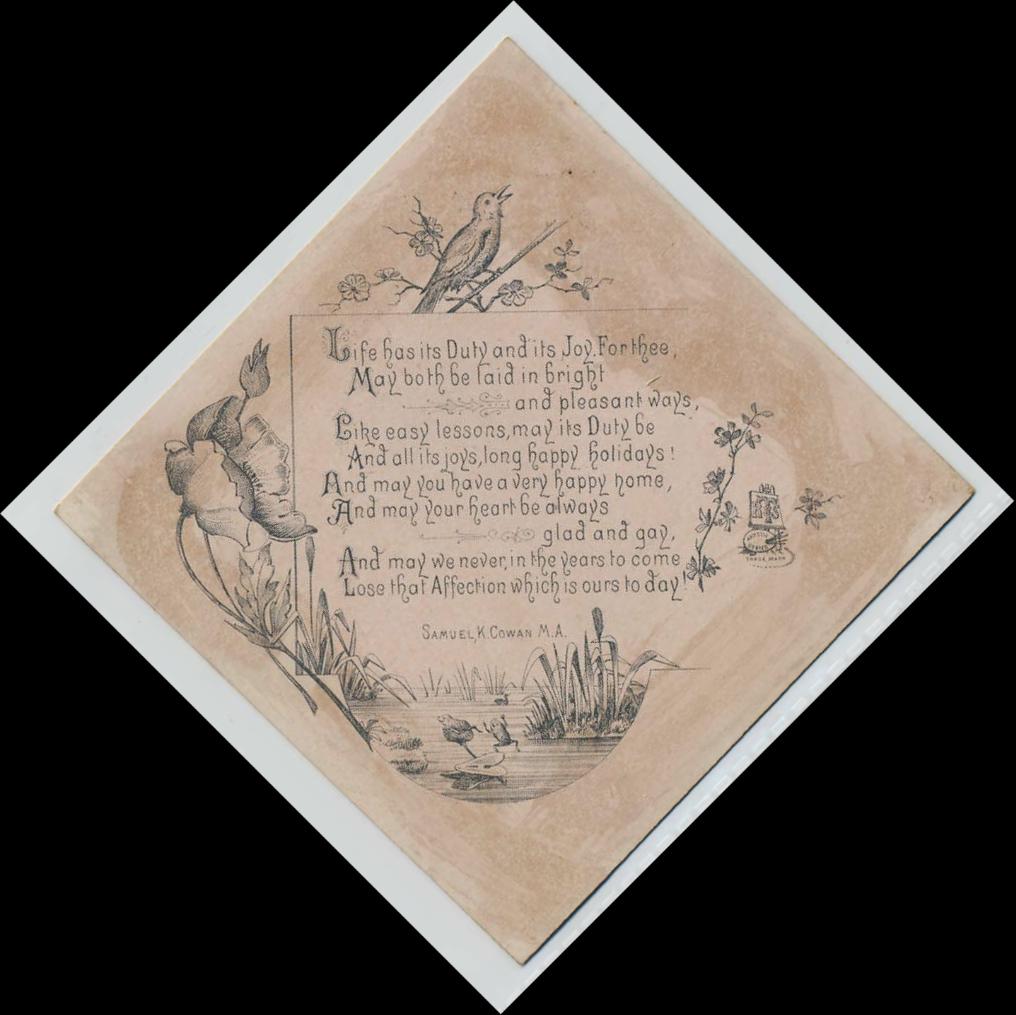 Life has its Duty and its Joy. For thee,
May both be laid in bright
and pleasant ways,
Like easy lessons, may its Duty be
And all its joys, long happy holidays!
And may you have a very happy home,
And may your heart be always
glad and gay,
And may we never, in the years to come
Lose that Affection which is ours to day!
SAMUEL, K. COWAN M.A.
TRADE MARK